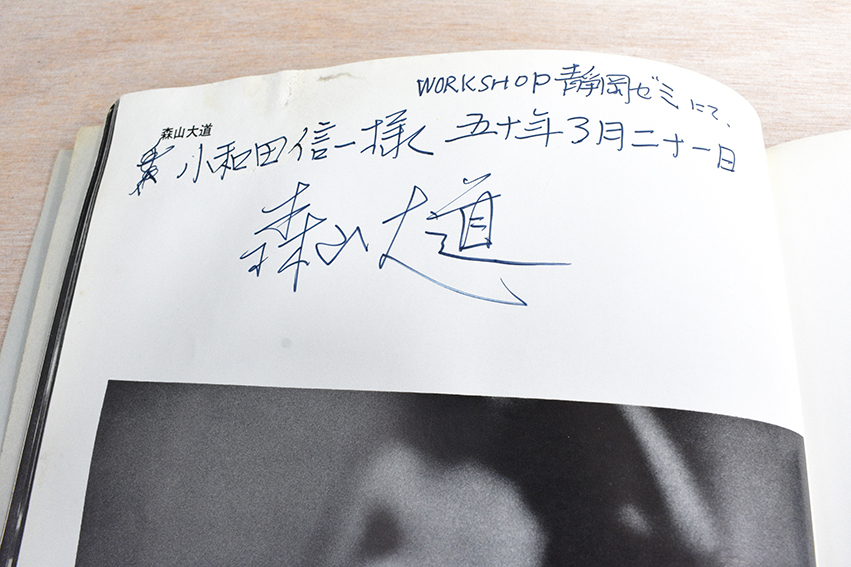 WORKSHOP 静岡ゼミにて、
森山大道
小和田信一様 五十年3月二十一日
森山大道